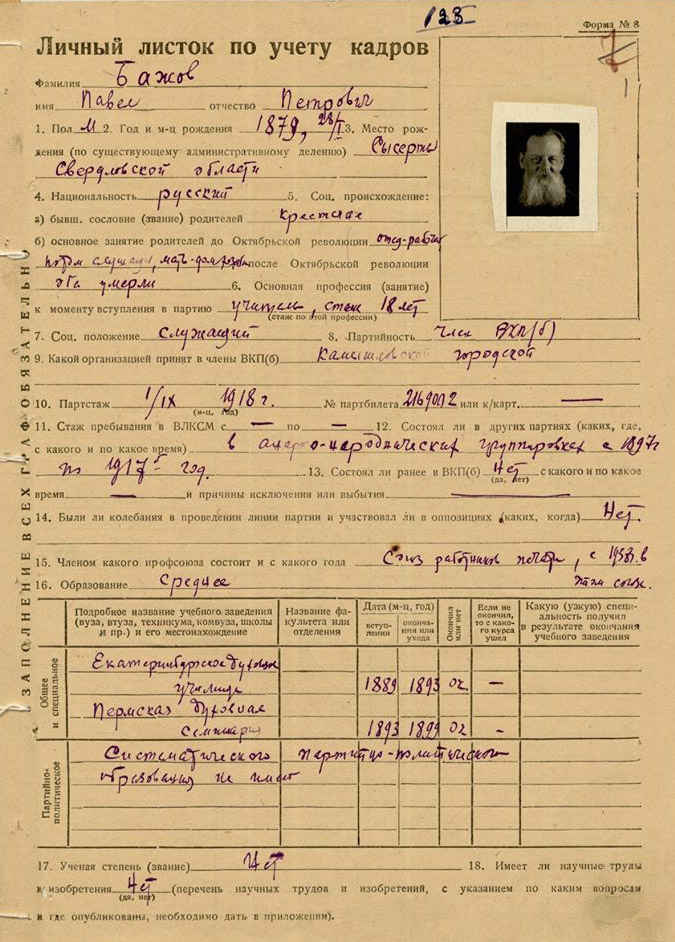 125
Форма № 8
Личный листок по учету кадров
Фамилия Бажов
имя Павел отчество Петрович
1. Пол М 2. Год и м-ц рождения 1879, 28/I 3. Место рож-
дения (по существующему административному делению) Сысерть
Свердловской области
4. Национальность русский 5. Соц. происхождение:
а) бывш. сословие (звание) родителей крестьяне
б) основное занятие родителей до Октябрьской революции отец-рабочий
потом служащий, мать-домохоз. после Октябрьской революции
оба умерли 6. Основная профессия (занятие)
к моменту вступления в партию учитель, стаж 18 лет
(стаж по этой профессии)
7. Соц. положение служащий 8. Партийность член ВКП(б)
9. Какой организацией принят в члены ВКП(б) Камышловской городской
10. Партстаж 1/IX 1918 г. № партбилета 2169072 или к/карт. —
(м-ц, год)
11. Стаж пребывания в ВЛКСМ с — по — 12. Состоял ли в других партиях (каких, где,
с какого и по какое время) в группировках с 1897 г
по 1917 год. 13. Состоял ли ранее в ВКП(б) Нет с какого и по какое
(да, нет)
время — и причины исключения или выбытия —
14. Были ли колебания в проведении линии партии и участвовал ли в оппозициях (каких, когда) Нет.
15. Членом какого профсоюза состоит и с какого года Союз работников печати, с 1938 в
этом союзе.
16. Образование Среднее
ЗАПОЛНЕНИЕ ВСЕХ ГРАФ ОБЯЗАТЕЛЬНО
Подробное название учебного заведения (вуза, втуза, техникума, комвуза, школы и пр.) и его местонахождение
Название факультета или отделения
Дата (м-ц, год)
вступления
окончания или ухода
Окончил или нет
Если не окончил, то с какого курса ушел
Какую (узкую) специальность получил в результате окончания учебного заведения
Общее и специальное
Екатеринбургское духовное
училище 1889 1893 ок. —
Пермская духовная
семинария 1893 1899 ок —
Партийно-политическое
Систематического партийно-политического
образования не имею
17. Ученая степень (звание) Нет 18. Имеет ли научные труды
и изобретения Нет (перечень научных трудов и изобретений, с указанием по каким вопросам
(да, нет)
и где опубликованы, необходимо дать в приложении).